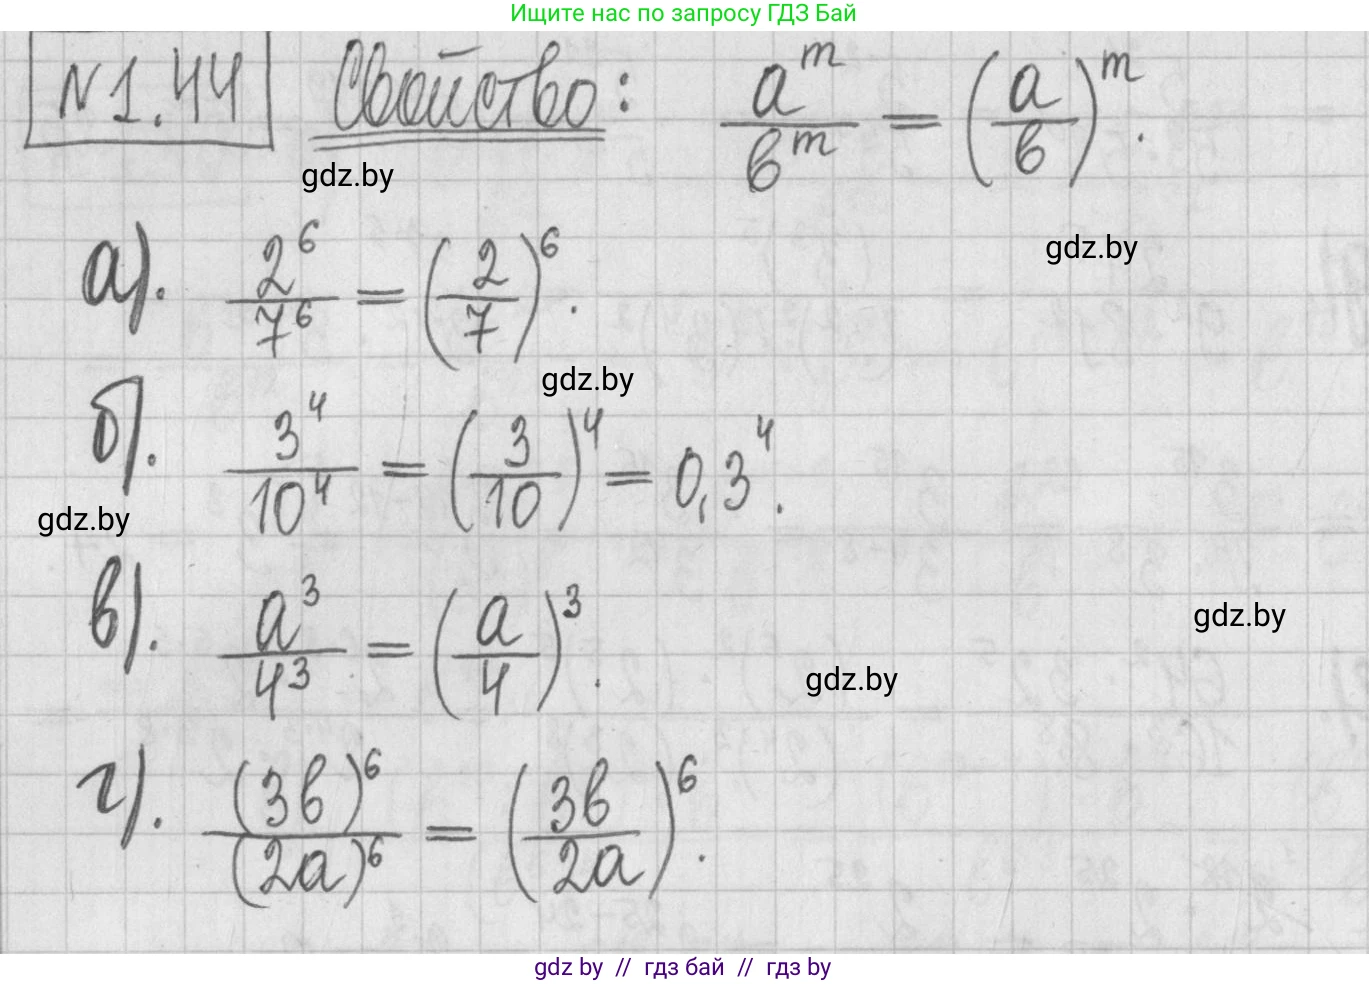 Ищите нас по запросу ГДЗ Бай
N 1.44 Свойство: a^m/b^m = (a/b)^m.
gdz.by
а). 2^6/7^6 = (2/7)^6.
gdz.by
gdz.by
б). 3^4/10^4 = (3/10)^4 = 0,3^4.
gdz.by
в). a^3/4^3 = (a/4)^3.
gdz.by
gdz.by
г). (3b)^6/(2a)^6 = (3b/2a)^6.
gdz by // гдз бай // гдз by